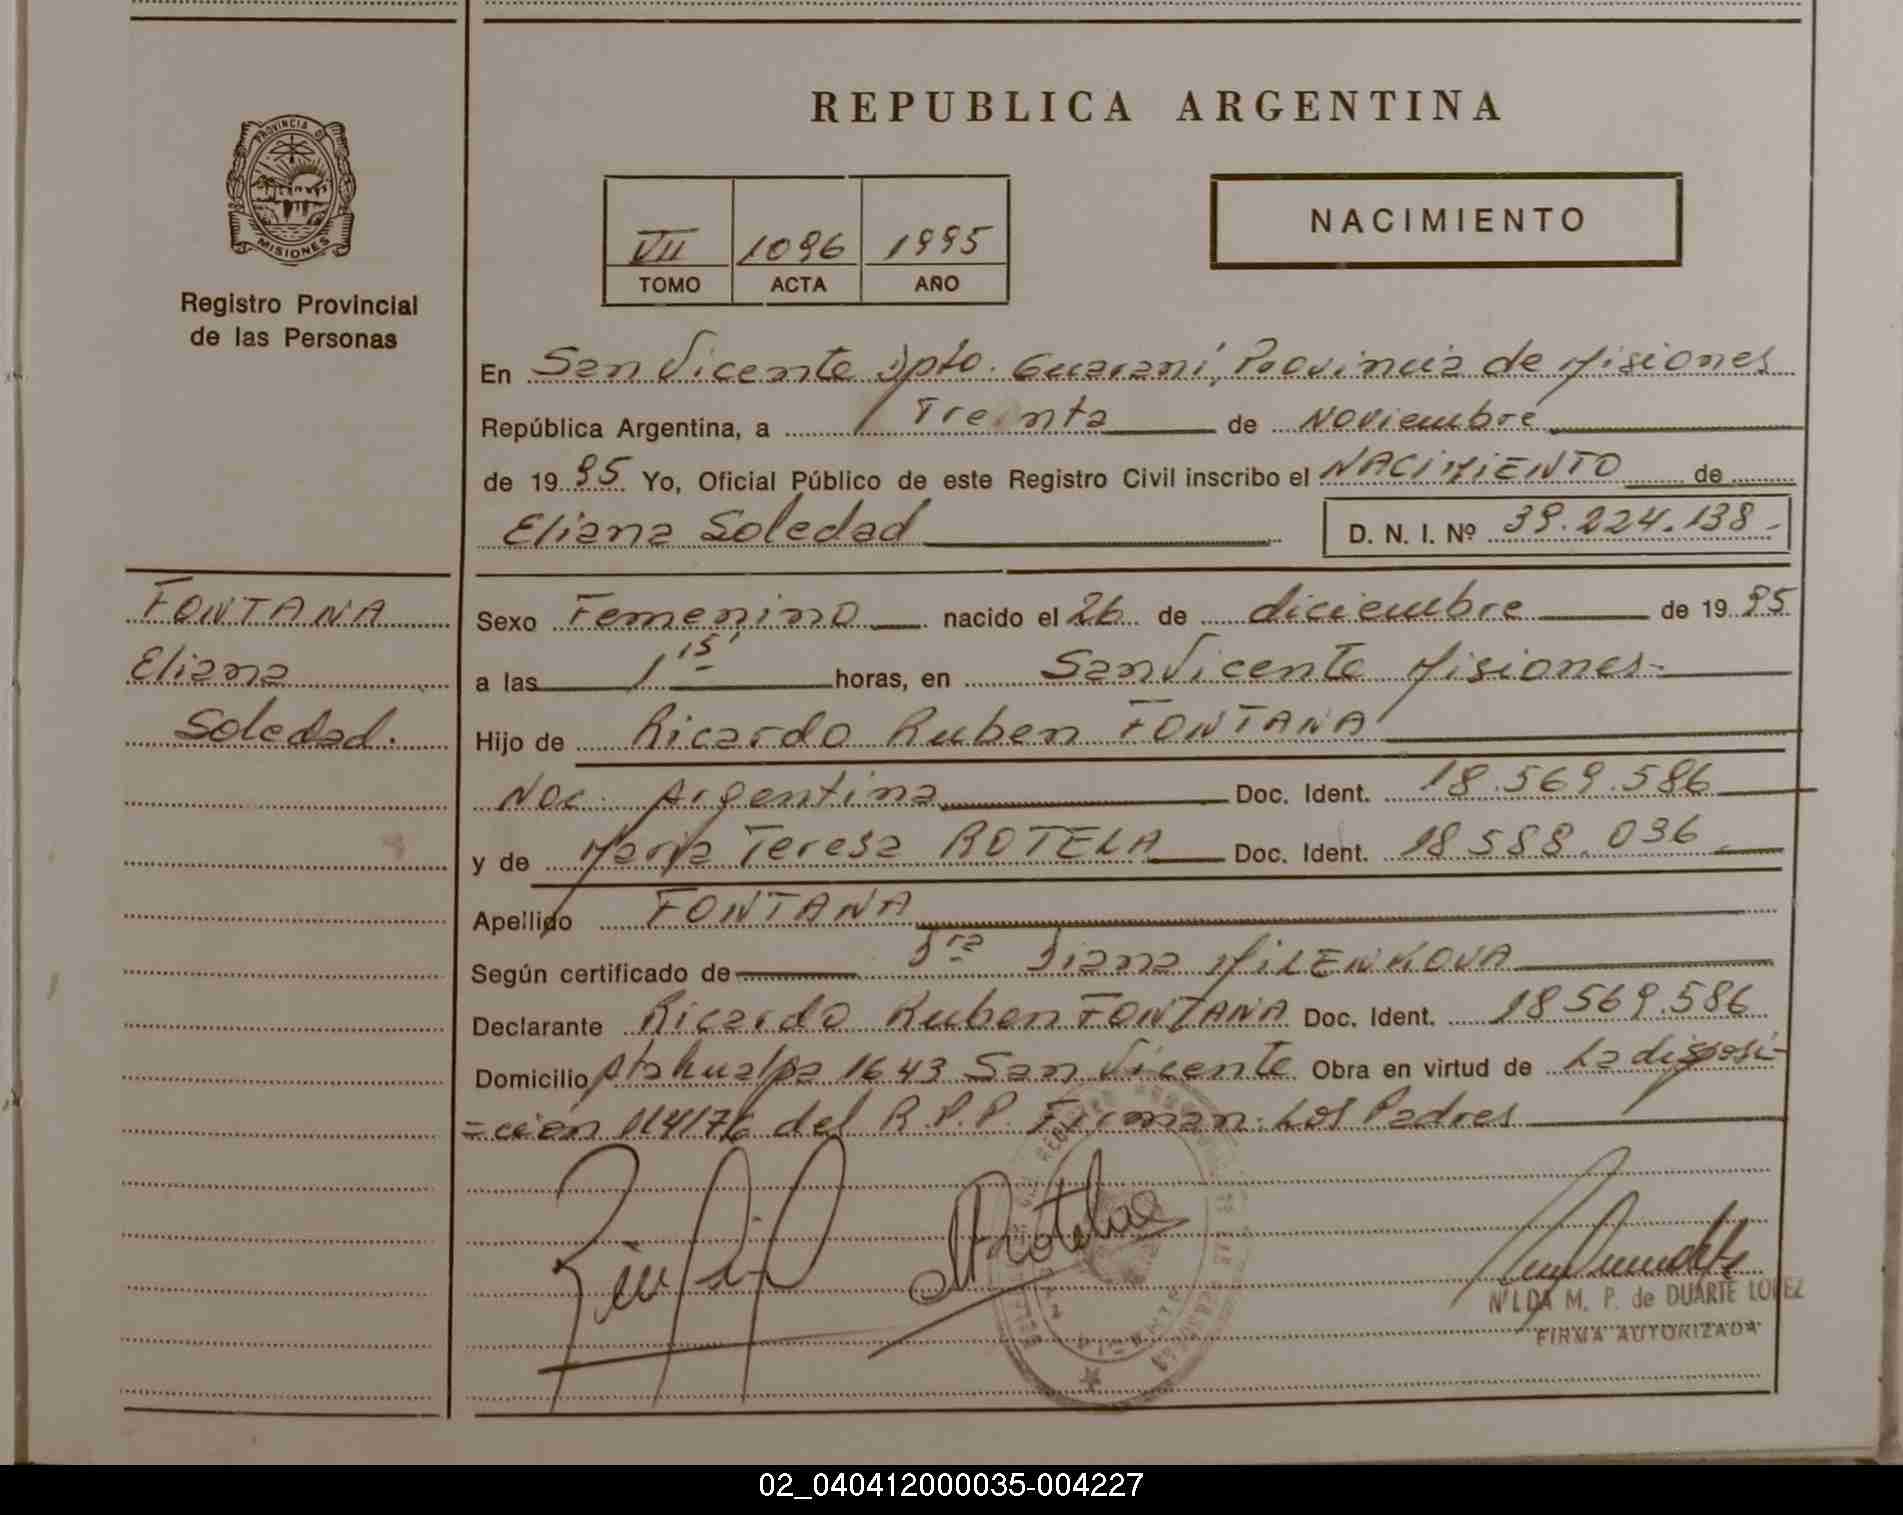 REPUBLICA ARGENTINA
PROVINCIA DE
MISIONES
Registro Provincial
de las Personas
VII 1096 1995
TOMO ACTA AÑO
NACIMIENTO
En San Vicente Dpto. Guaraní, Provincia de Misiones
República Argentina, a Treinta de Noviembre
de 1995 Yo, Oficial Público de este Registro Civil inscribo el NACIMIENTO de
Eliana Soledad D. N. I. Nº 39.224.138.-
FONTANA
Eliana
Soledad.
Sexo Femenino nacido el 26 de diciembre de 1995
a las 1 15' horas, en San Vicente Misiones=
Hijo de Ricardo Ruben FONTANA
Nac. Argentina Doc. Ident. 18.569.586
y de Maria Teresa ROTELA Doc. Ident. 18 588.036
Apellido FONTANA
Según certificado de Dra Diana MILENKOVA
Declarante Ricardo Ruben FONTANA Doc. Ident. 18 569.586
Domicilio Atahualpa 1643 San Vicente Obra en virtud de La disposi-
=ción 114/76 del R.P.P. Firman: Los Padres
MRotela
NILDA M. P. de DUARTE LOPEZ
FIRMA AUTORIZADA
02_040412000035-004227